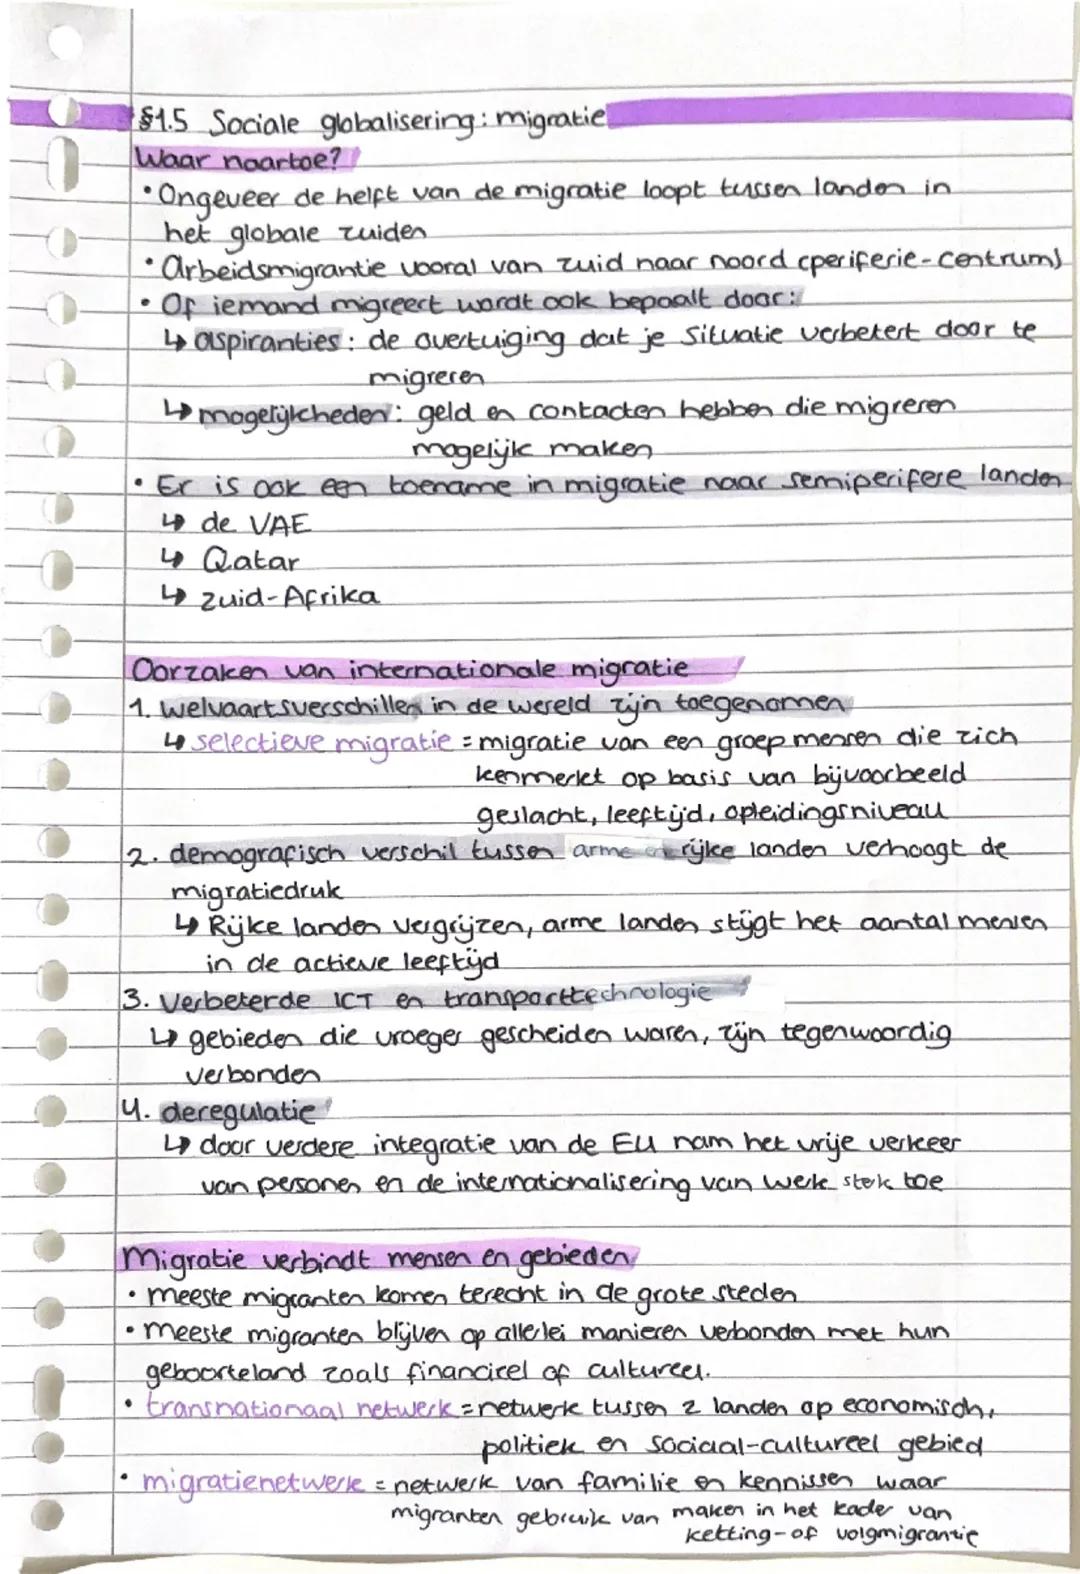 §1.5 Sociale globalisering: migratie
Waar naartoe?
• Ongeveer de helft van de migratie loopt tussen landen in
het globale zuiden
• Arbeidsmigrantie vooral van zuid naar noord (periferie-centrum)
• Of iemand migreert wordt ook bepaalt door:
↳ aspiranties: de overtuiging dat je situatie verbetert door te
migreren
↳ mogelijkheden: geld en contacten hebben die migreren
mogelijk maken
• Er is ook een toename in migratie naar semiperifere landen
↳ de VAE
↳ Qatar
↳ Zuid-Afrika
Oorzaken van internationale migratie
1. welvaartsverschillen in de wereld zijn toegenomen
↳ selectieve migratie = migratie van een groep mensen die zich
kenmerkt op basis van bijvoorbeeld
geslacht, leeftijd, opleidingsniveau
2. demografisch verschil tussen arme en rijke landen verhoogt de
migratiedruk
↳ Rijke landen vergrijzen, arme landen stijgt het aantal mensen
in de actieve leeftijd
3. Verbeterde ICT en transporttechnologie
↳ gebieden die vroeger gescheiden waren, zijn tegenwoordig
verbonden
4. deregulatie
↳ door verdere integratie van de EU nam het vrije verkeer
van personen en de internationalisering van werk sterk toe
Migratie verbindt mensen en gebieden
• meeste migranten komen terecht in de grote steden
• meeste migranten blijven op allerlei manieren verbonden met hun
geboorteland zoals financieel of cultureel.
• transnationaal netwerk = netwerk tussen 2 landen op economisch,
politiek en sociaal-cultureel gebied
• migratienetwerk = netwerk van familie en kennissen waar
migranten gebruik van maken in het kader van
ketting- of volgmigrantie